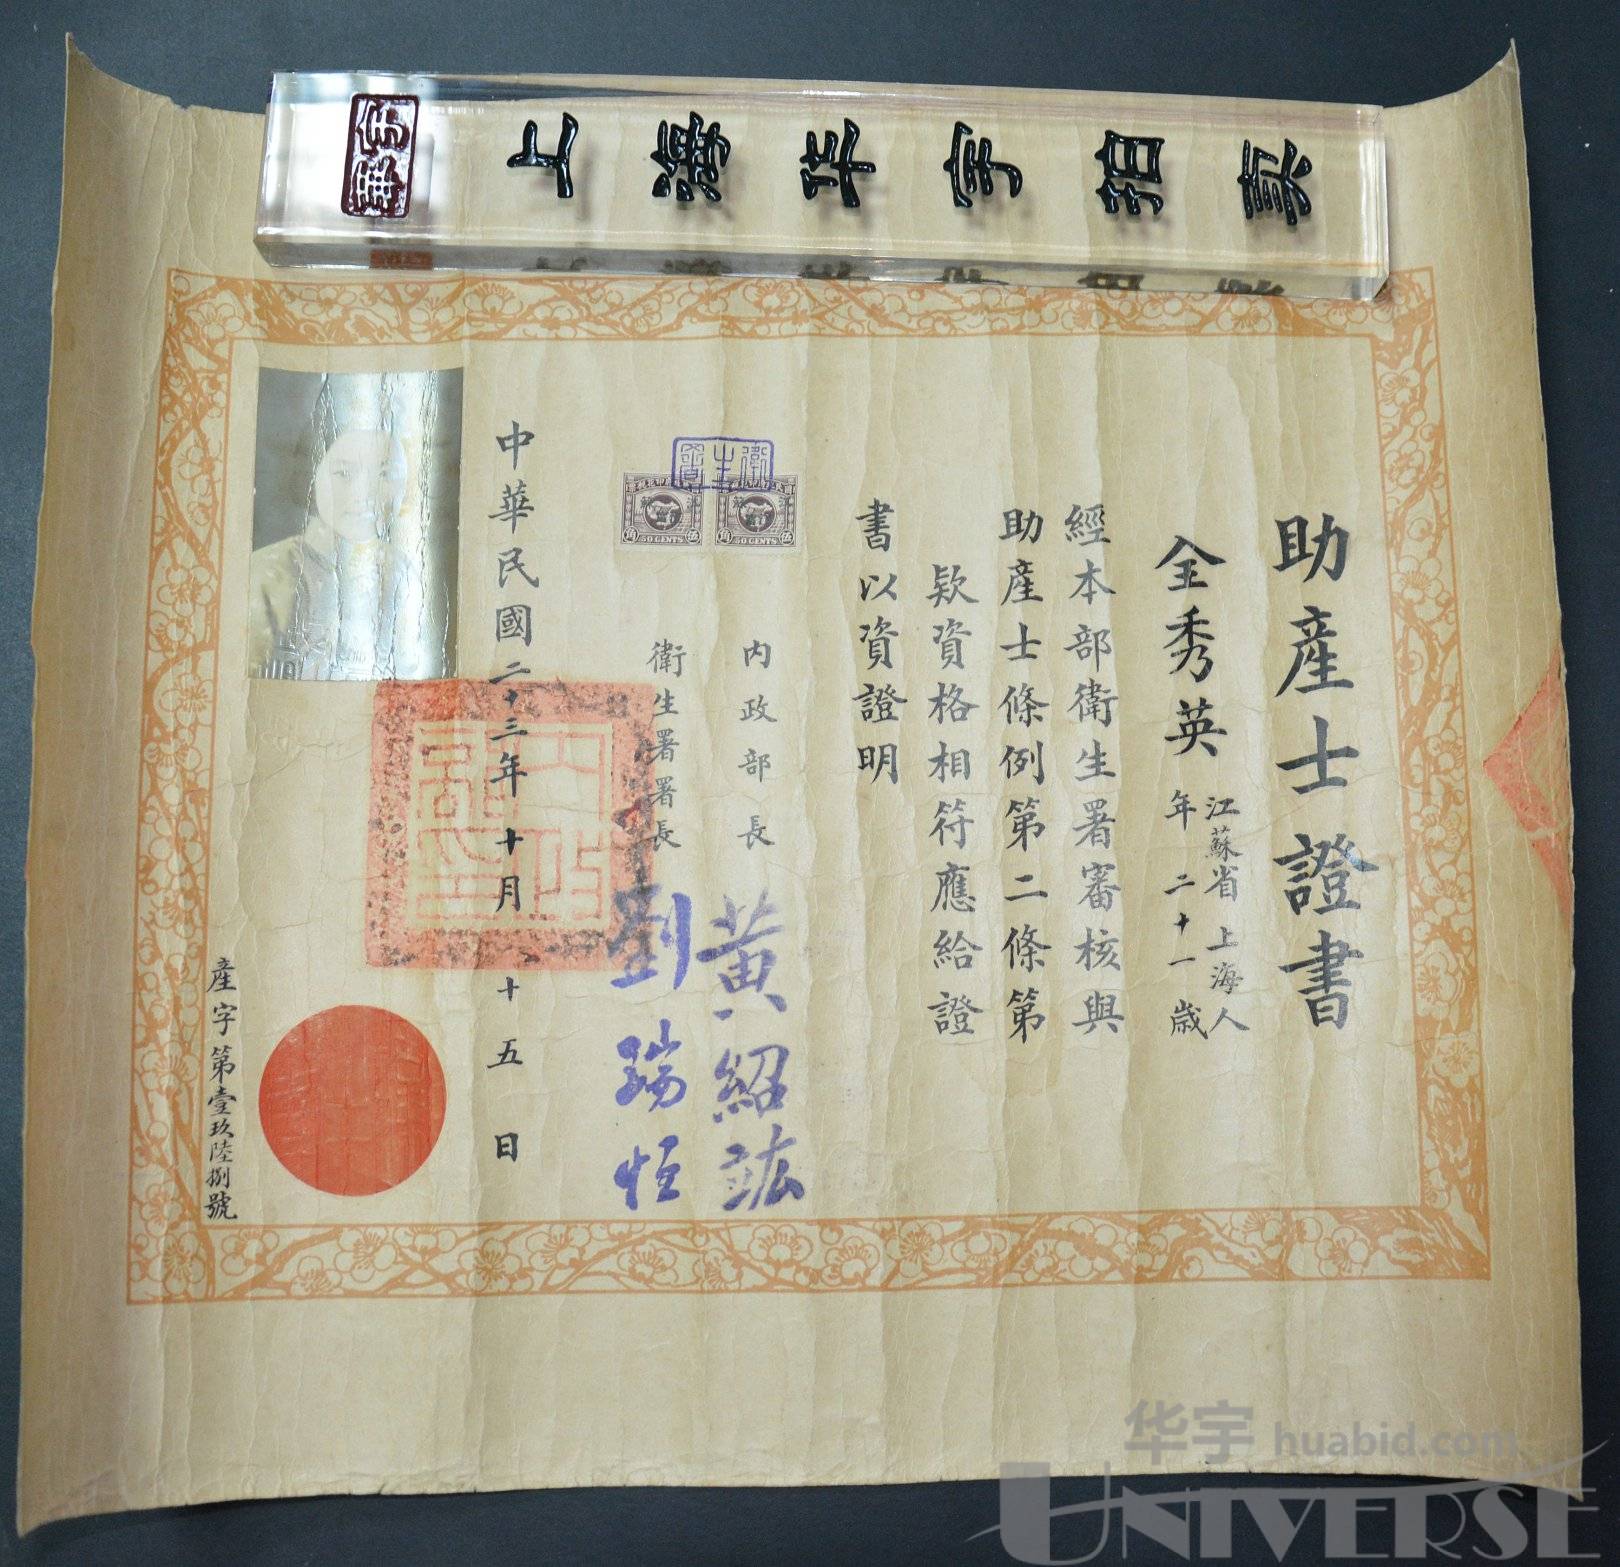 上海华宇拍卖
助產士證書
金秀英
江蘇省上海人
年二十一歲
經本部衛生署審核與
助產士條例第二條第
款資格相符應給證
書以資證明
衛生署
伍角
50 CENTS
伍角
50 CENTS
內政部長 黃紹竑
衛生署署長 劉瑞恒
中華民國二十三年十月十五日
內政部印
產字第壹玖陸捌號
华宇 huabid.com
UNIVERSE